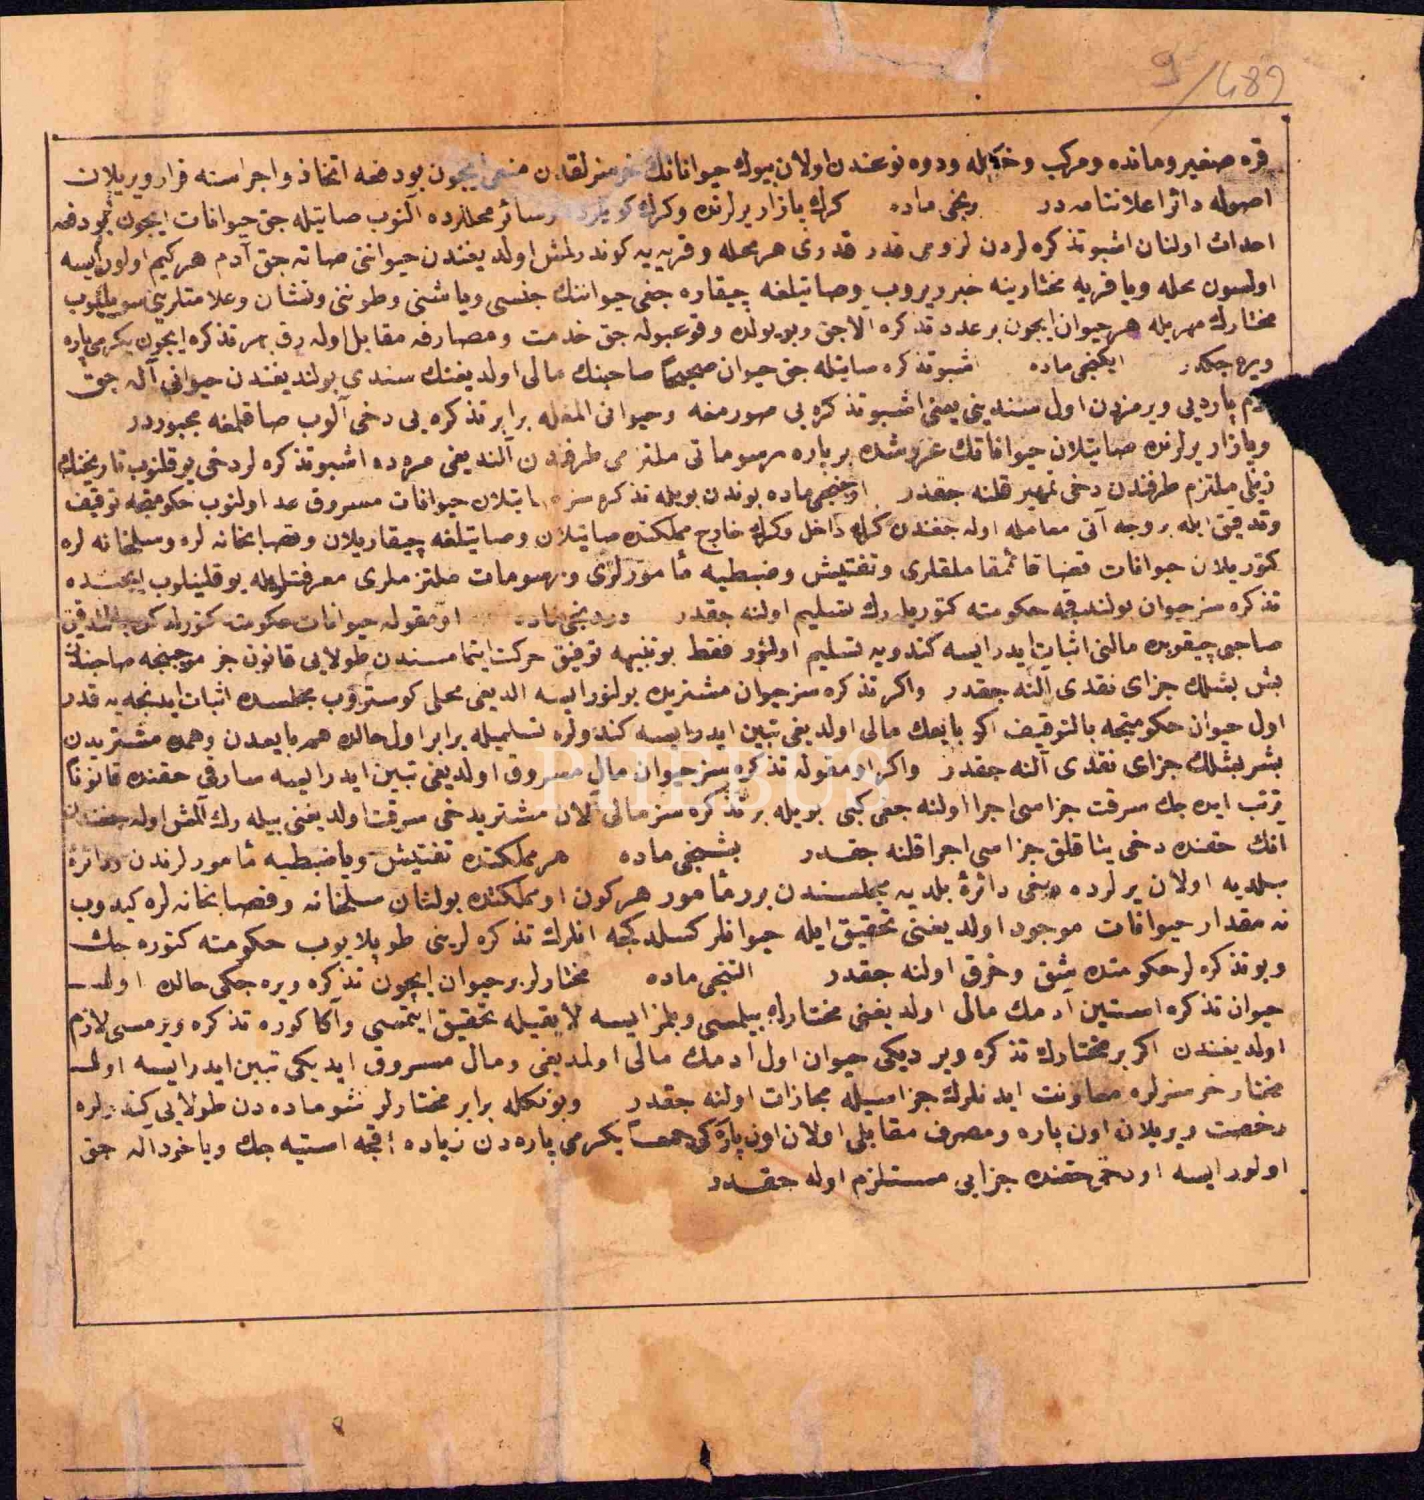 9/489
قره صغیر و مانده و مرکب و خیله و دوه نوعندن اولان بیوك حیواناتك خرسزلقدن منعی ایچون بو دفعه اتخاذ و اجراسنه قرار ویریلان
اصوله دائر اعلاننامه در برنجی ماده كرك بازار یرلرنده و كرك كویلرده و سائر محللرده آلنوب صاتیله جق حیوانات ایچون بو دفعه
احداث اولنان اشبو تذكره لردن لزومی قدر قدری هر محله و قریه یه كوندرلمش اولدیغندن حیواننی صاته جق آدم هر كیم اولور ایسه
اولسون محله ویا قریه مختارینه خبر ویروب و صاتیلغه چیقاره جغی حیواننك جنسی و یاشنی و طوننی و نشان و علامتلرینی سویلیوب
مختارك مهریله هر حیوان ایچون بر عدد تذكره الاجق و بو یولده وقوعبوله جق خدمت و مصارفه مقابل اوله رق بهر تذكره ایچون یكرمی پاره
ویره جكدر ایكنجی ماده اشبو تذكره صاتیله جق حیوان صحیحا صاحبنك مالی اولدیغنك سندی بولندیغندن حیوانی آله جق
آدم پاره یی ویرمزدن اول سندینی یعنی اشبو تذكره یی صورمغه و حیوانی المغله برابر تذكره یی دخی آلوب صاقلمغه مجبوردر
و بازار یرلرنده صاتیلان حیواناتك غروشده بر پاره رسوماتی ملتزمی طرفندن آلندیغی صره ده اشبو تذكره لر دخی یوقلنوب تاریخنك
ذیلی ملتزم طرفندن دخی تمهیر قلنه جقدر اوچنجی ماده بوندن بویله تذكره سز صاتیلان حیوانات مسروق عد اولنوب حكومتجه توقیف
و تدقیق ایله بر وجه آتی معامله اوله جغندن كرك داخل و كرك خارج مملكتده صاتیلان و صاتیلغه چیقاریلان و قصابخانه لره و سلخانه لره
كتوریلان حیوانات قضا قائمقاملقلری و تفتیش و ضبطیه مأمورلری و رسومات ملتزملری معرفتلریله یوقلینلوب ایچنده
تذكره سز حیوان بولندقجه حكومته كتوریله رك تسلیم اولنه جقدر دردنجی ماده او مقوله حیوانات حكومته كتورلدكده بالتدقیق
صاحبی چیقوبده مالنی اثبات ایدر ایسه كندویه تسلیم اولنور فقط بو تنبیهه توفیق حركت ایتمامسندن طولایی قانون جزا موجبنجه صاحبندن
بش بشلك جزای نقدی آلنه جقدر واكر تذكره سز حیوان مشتریده بولنور ایسه الدیغی محلی كوستروب مجلسده اثبات ایدنجه یه قدر
اول حیوان حكومتجه بالتوقیف اكر بایعك مالی اولدیغی تبین ایدر ایسه كندولره تسلیمیله برابر اول حالده هم بایعدن و همده مشتریدن
بشر بشلك جزای نقدی آلنه جقدر واكر او مقوله تذكره سز حیوان مال مسروق اولدیغی تبین ایدر ایسه سارقی حقنده قانونا
ترتب ایده جك سرقت جزاسی اجرا اولنه جغی كبی بویله بر تذكره سز مالی آلان مشتری دخی سرقت اولدیغنی بیله رك آلمش اوله جغندن
انك حقنده دخی یتاقلق جزاسی اجرا قلنه جقدر بشنجی ماده هر مملكتده تفتیش ویا ضبطیه مأمورلرندن و دائرهٔ
بلدیه اولان یرلرده دخی دائرهٔ بلدیه مجلسندن بر مأمور هر كون او مملكتده بولنان سلخانه و قصابخانه لره كیدوب
نه مقدار حیوانات موجود اولدیغنی تحقیق ایله حیوانلر كسلدكجه انلرك تذكره لرینی طوپلایوب حكومته كتوره جك
و بو تذكره لر حكومتده شق و خرق اولنه جقدر التنجی ماده مختارلر بر حیوان ایچون تذكره ویره جكی حالده اول
حیوان تذكره استین آدمك مالی اولدیغنی مختارلر بیلمسی و بلمز ایسه لایقیله تحقیق ایتمسی و آكا كوره تذكره ویرمسی لازم
اولدیغندن اكر بر مختارك تذكره ویردیكی حیوان اول آدمك مالی اولمدیغی و مال مسروق ایدیكی تبین ایدر ایسه اول
مختار خرسزلره معاونت ایدنلرك جزاسیله مجازات اولنه جقدر و بونكله برابر مختارلر شو ماده دن طولایی كندولره
رخصت ویریلان اون پاره و مصرف مقابلی اولان اون پاره كه جمعا یكرمی پاره دن زیاده اقچه استیه جك ویاخود اله جق
اولور ایسه او دخی حقنده جزایی مستلزم اوله جقدر
PHEBUS